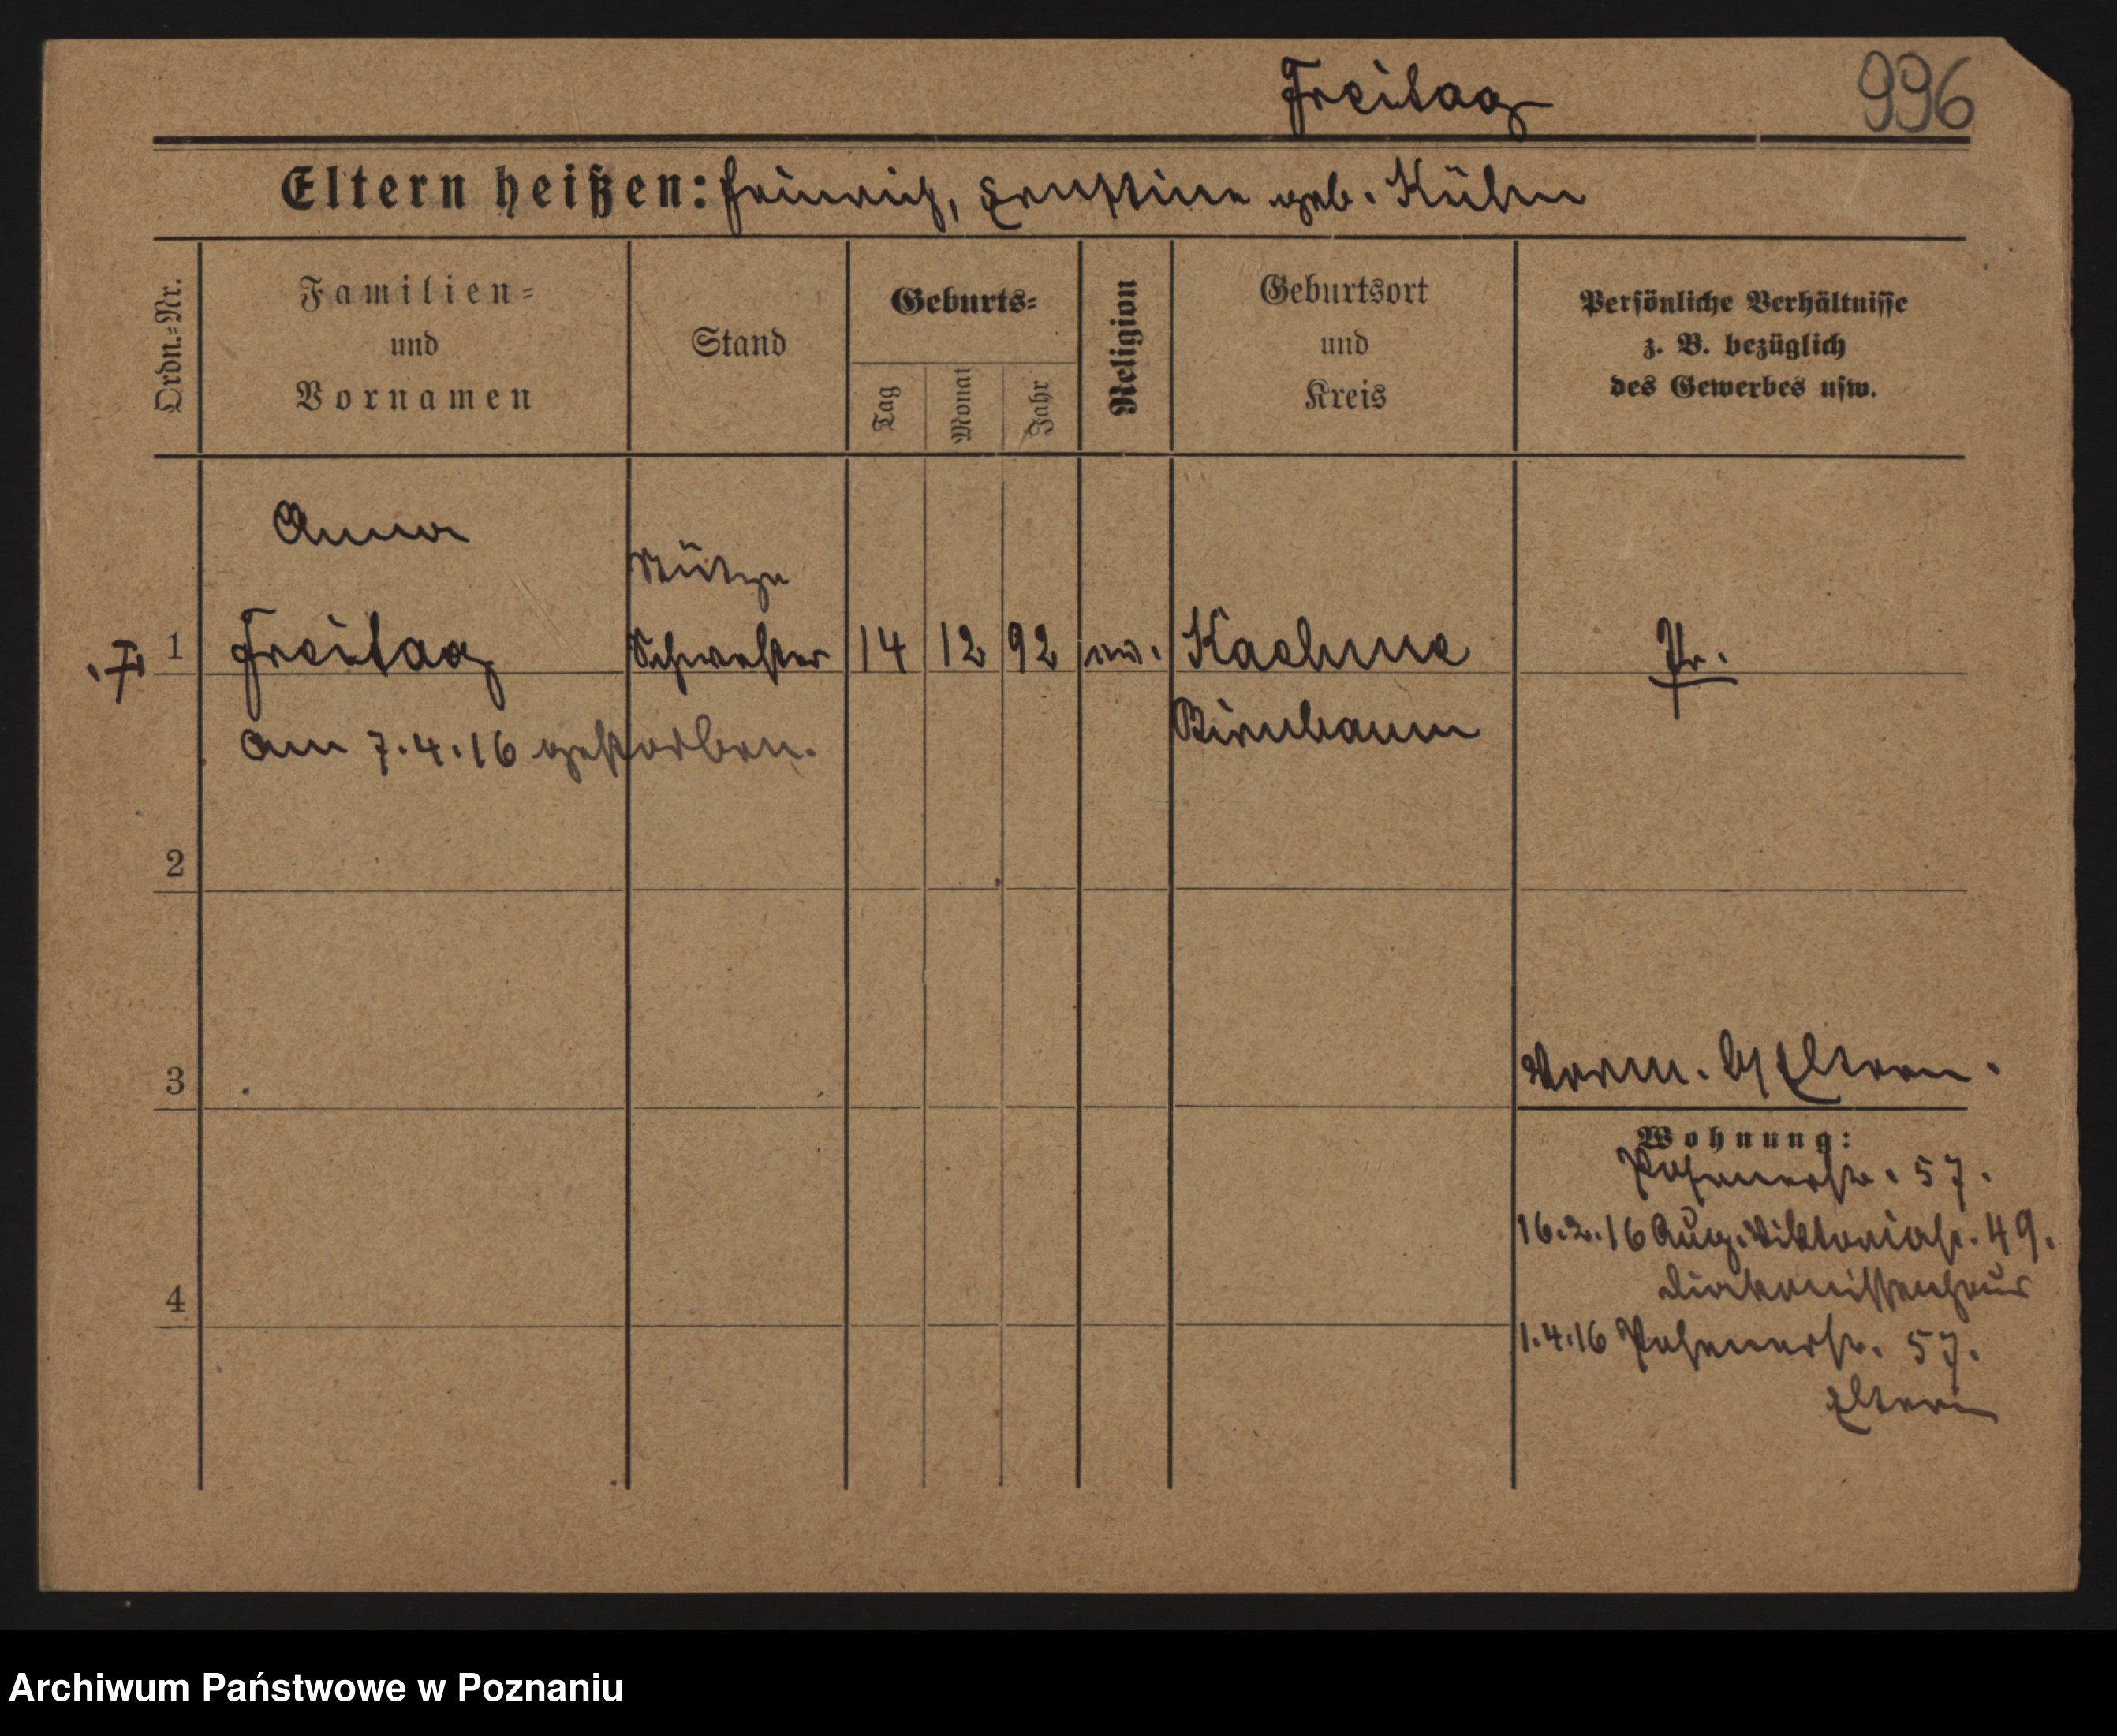 Freitag
996
Eltern heißen: Heinrich, Ernstine geb. Kühn
Ordn.-Nr.
Familien-
und
Vornamen
Stand
Geburts-
Tag
Monat
Jahr
Religion
Geburtsort
und
Kreis
Persönliche Verhältnisse
z. B. bezüglich
des Gewerbes usw.
Anna
Stütze
1
Freitag
Schwester
14
12
92
ev.
Kaehme
Pr.
Birnbaum
am 7.4.16 gestorben.
2
3
Eltern.
Wohnung:
Posenerstr. 57.
16.2.16 Aug. Viktoriastr. 49.
Diakonissenhaus
4
1.4.16 Posenerstr. 57.
Eltern
Archiwum Państwowe w Poznaniu